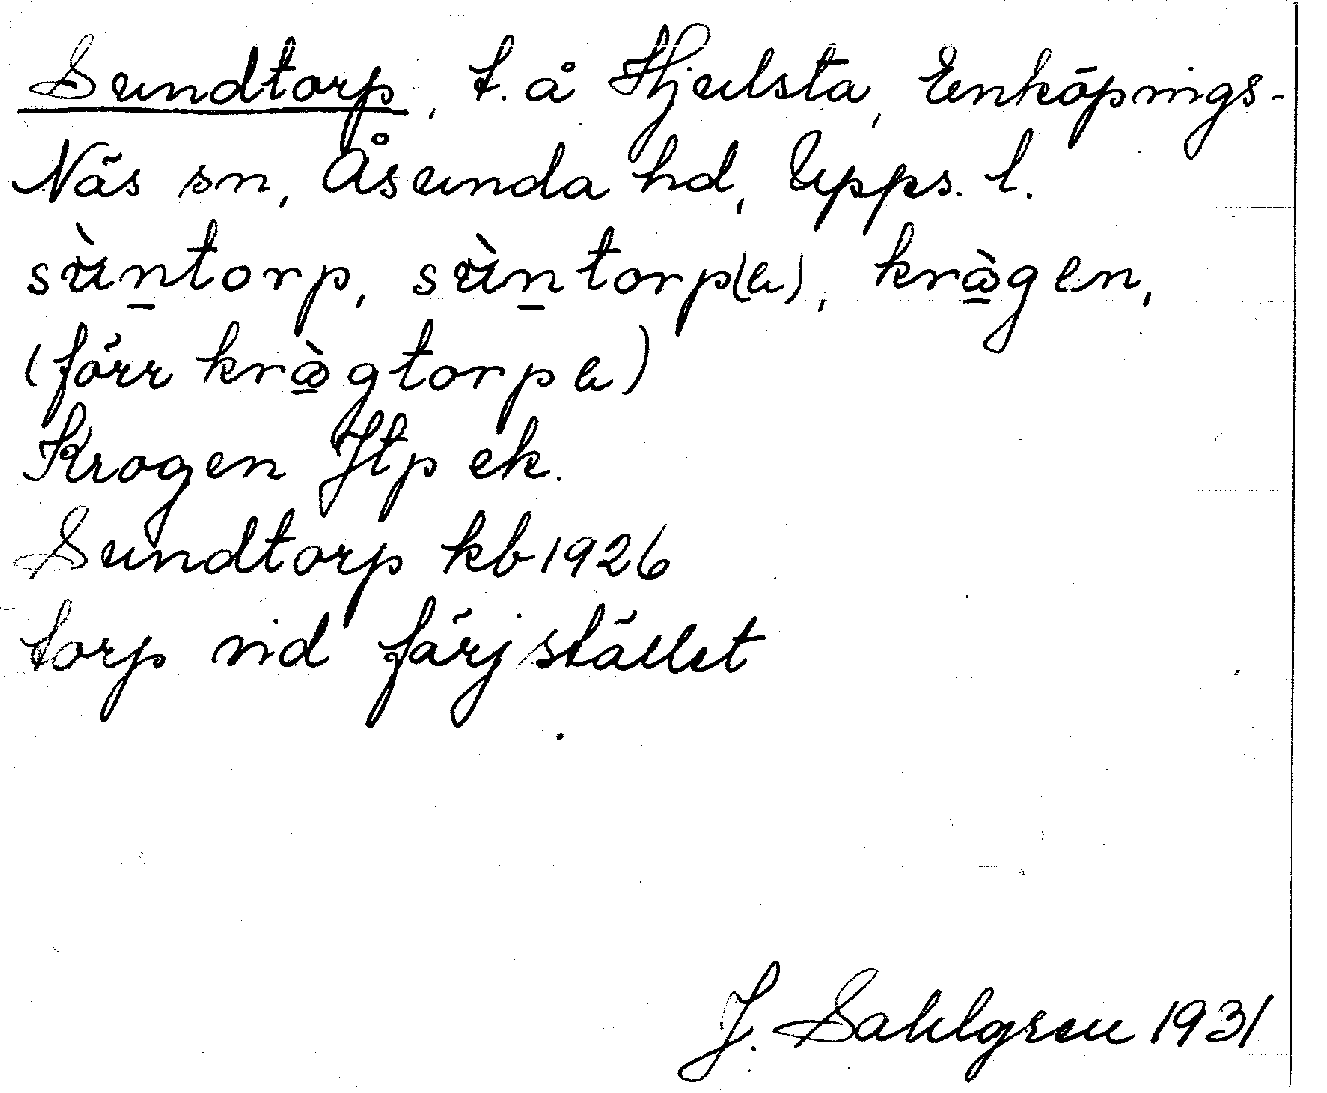 Sundtorp, t. å Hjulsta, Enköpings-
Näs sn, Åsunda hd, Upps. l.
sùn̲torp, sùn̲torp(a), krὼ̲gen,
(förr krὼ̲gtorpa)
Krogen Jtp ek.
Sundtorp kb 1926
torp vid färjstället
J. Sahlgren 1931